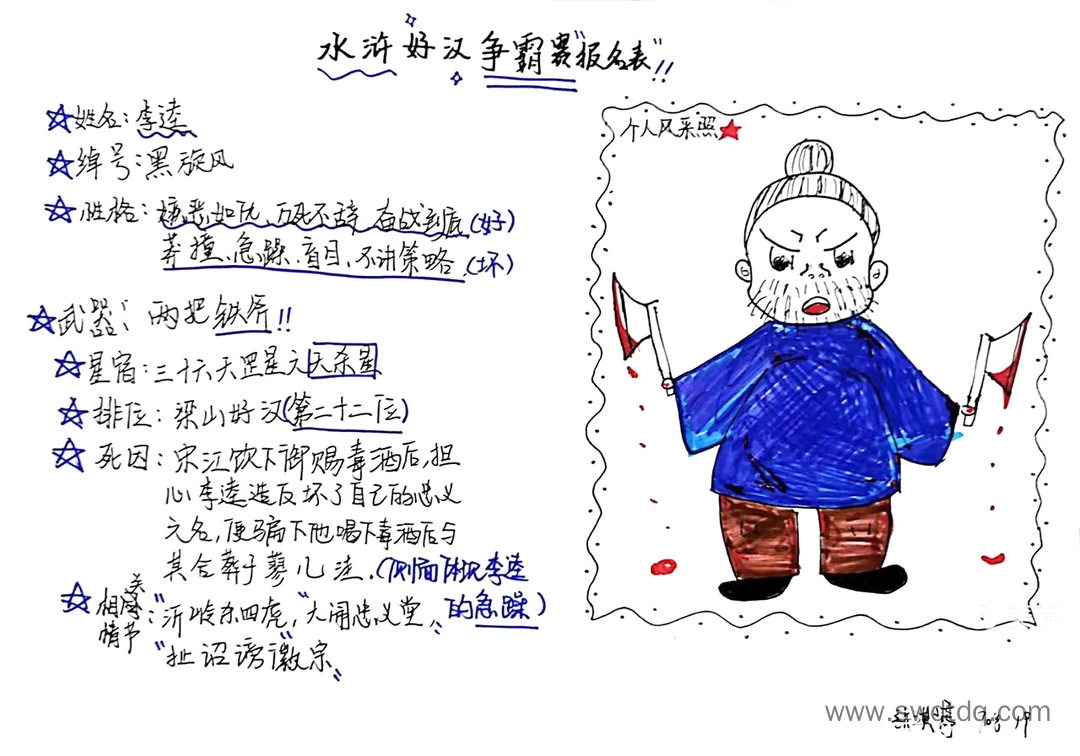 水浒好汉争霸赛"报名表"!!
☆姓名:李逵
☆绰号:黑旋风
☆性格:嫉恶如仇、万死不辞、奋战到底(好)
莽撞、急躁、盲目、不讲策略.(坏)
☆武器:两把铁斧!!
☆星宿:三十六天罡星之天杀星
☆排位:梁山好汉(第二十二位)
☆死因:宋江饮下御赐毒酒后,担
心李逵造反坏了自己的忠义
之名,便骗下他喝下毒酒后与
其合葬于蓼儿洼.(侧面体现李逵
的急躁)
☆相关情节:"沂岭杀四虎","大闹忠义堂",
"扯诏谤徽宗"
个人风采照
www.swordq.com